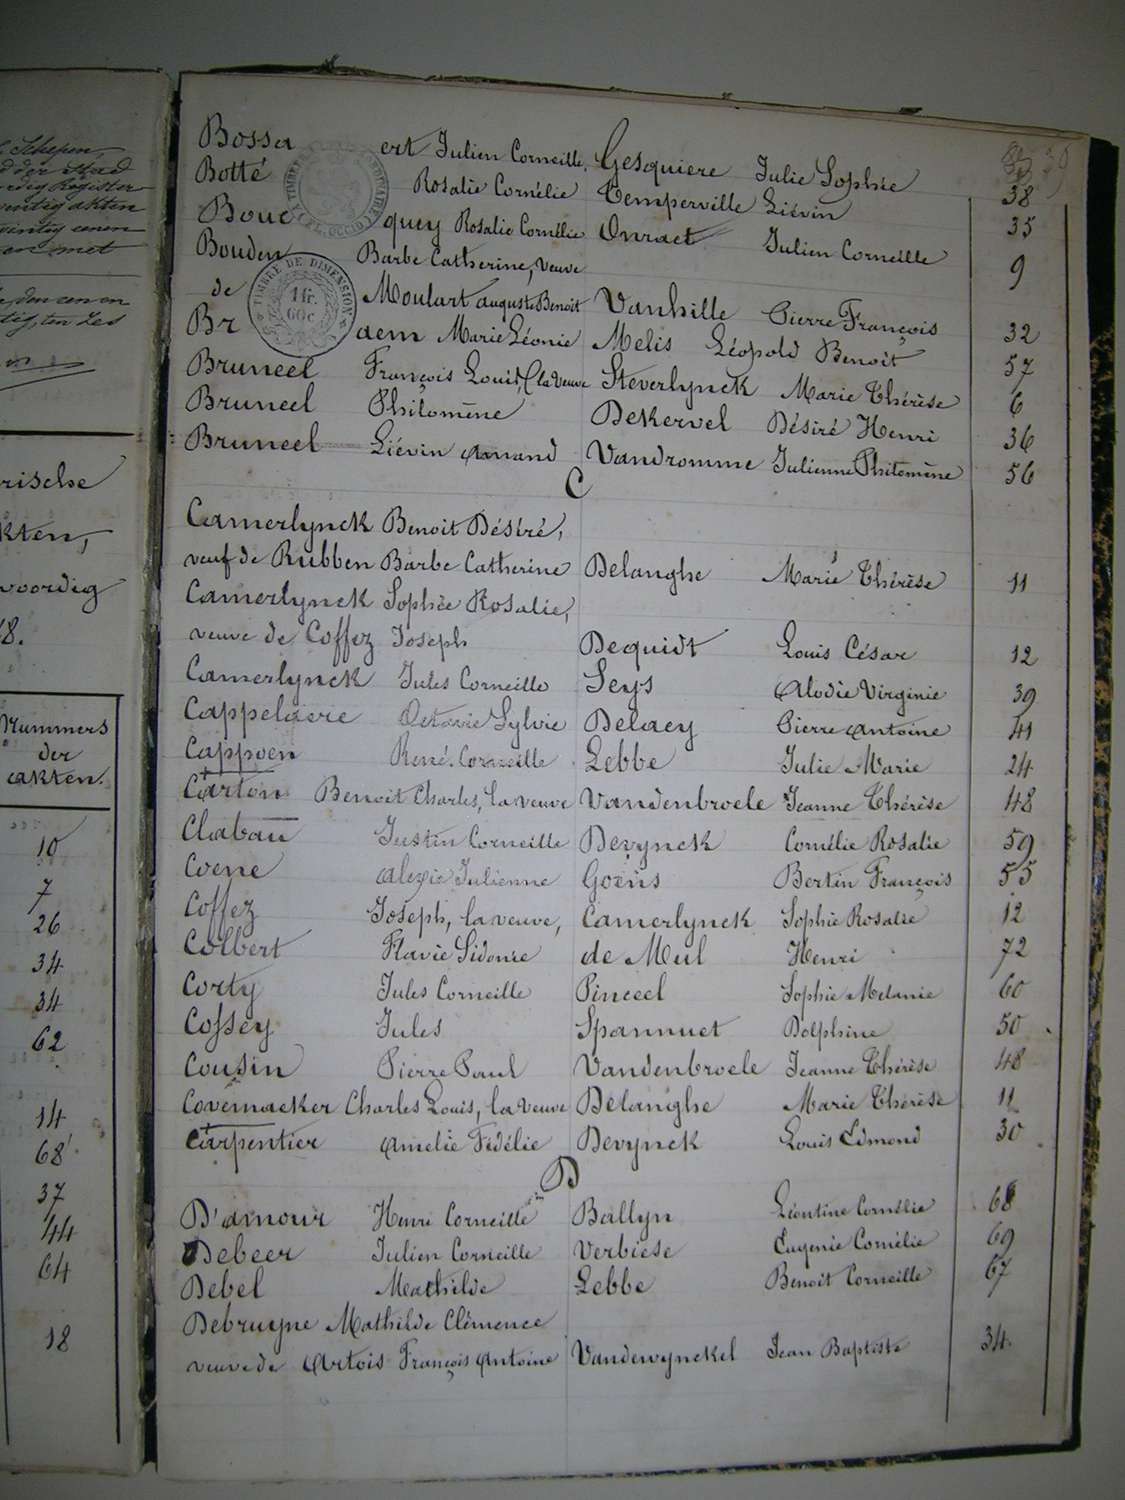 Schepen
der Stad
dig Register
ventig akten
en met
den een en
rische
kten,
voordig
8.
Nummers
der
akten.
10
7
26
34
34
62
14
68
37
44
64
18
Bossaert Julien Corneille, Gesquiere Julie Sophie 38
Botté Rosalie Cornélie Temperville Liévin 35
Boucquey Rosalie Cornélie Onraet Julien Corneille 9
Bouden Barbe Catherine, veuve
de Moulart Auguste Benoit Vanhille Pierre François 32
Braem Marie Léonie Melis Léopold Benoit 57
Bruneel François Louis, la veuve Steverlynck Marie Thérèse 6
Bruneel Philomène Dekervel Désiré Henri 36
Bruneel Liévin Amand Vandromme Julienne Philomène 56
TIMBRE DE DIMENSION
1 fr.
60c
C
Camerlynck Benoit Désiré,
veuf de Rubben Barbe Catherine Delanghe Marie Thérèse 11
Camerlynck Sophie Rosalie,
veuve de Coffez Joseph Dequidt Louis César 12
Camerlynck Jules Corneille Seys Alodie Virginie 39
Cappelaere Octavie Sylvie Delaey Pierre Antoine 41
Cappoen René Corneille Lebbe Julie Marie 24
Carton Benoit Charles, la veuve Vandenbroele Jeanne Thérèse 48
Clabau Justin Corneille Devynck Cornélie Rosalie 59
Coene Alexie Julienne Goens Bertin François 55
Coffez Joseph, la veuve, Camerlynck Sophie Rosalie 12
Colbert Flavie Sidonie de Meul Henri 72
Corty Jules Corneille Pinceel Sophie Melanie 60
Cossey Jules Spannuet Delphine 50
Cousin Pierre Paul Vandenbroele Jeanne Thérèse 48
Covemacker Charles Louis, la veuve Delanghe Marie Thérèse 11
Carpentier Amelie Fidélie Devynck Louis Edmond 30
D
D'amour Henri Corneille Ballyn Léontine Cornélie 68
Debeer Julien Corneille Verbiese Eugenie Cornélie 69
Debel Mathilde Lebbe Benoit Corneille 67
Debruyne Mathilde Clémence
veuve de Artois François Antoine Vandewynckel Jean Baptiste 34